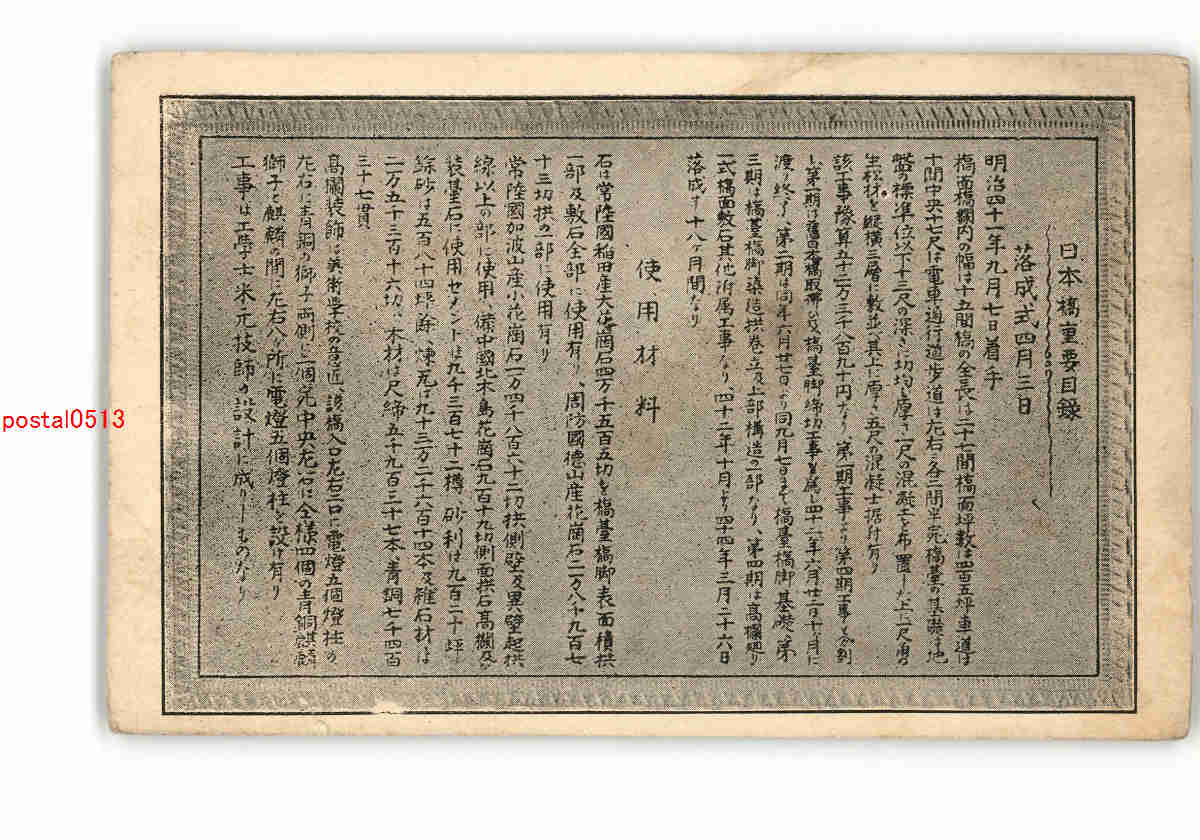 日本橋重要目録
落成式四月三日
明治四十一年九月七日着手
橋面橋欄内の幅は十五間橋の全長は二十七間橋面坪数は四百五坪車道は
十間中央十七尺は電車道行道歩道は左右に各二間半宛橋台の基礎は地
盤の標準位以下十三尺の深さに切均し厚さ一尺の混凝土を布置した上一尺角の
生松材を縦横三層に敷並べ其上に厚さ五尺の混凝土据付有り
該工事豫算五十二万三千八百九十円なり 第一期工事より第四期工事と分割
し第一期は旧日本橋取拂ひ及橋臺脚締切工事を為し四十二年六月廿二日十ヶ月に
渡り終了 第二期は同年六月廿七日より同九月七日まで橋臺橋脚基礎 第
三期は橋臺橋脚築造拱巻立及上部構造の一部なり、第四期は高欄廻り
一式橋面敷石其他附属工事なり、四十二年十月より四十四年三月二十六日
落成す十八ヶ月間なり
使用材料
石は常陸國稲田産大花崗石四万千五百五切を橋臺橋脚表面積拱
一部及敷石全部に使用有り、周防國徳山産花崗石二万八千九百七
十三切拱の一部に使用有り
常陸國加波山産小花崗石一万四千八百六十二切拱側壁及異壁起拱
線以上の部に使用、備中國北木島花崗石九百十九切側面拱石高欄及
装基石に使用セメントは九千三百七十二樽 砂利は九百二十坪
餘砂は五百八十四坪餘、煉瓦は九十三万二千六百十四本及雑石材は
二万五千三百十六切、木材は尺締五千九百三十七本、青銅七千四百
三十七貫
高欄装飾は美術学校の意匠、該橋入口左右二口に電燈五個燈柱の
左右に青銅の獅子両側に二個宛中央左右に全様四個の青銅麒麟
獅子と麒麟の間に左右八ヶ所に電燈五個燈柱を設け有り
工事は工學士米元技師の設計に成りしものなり
postal0513